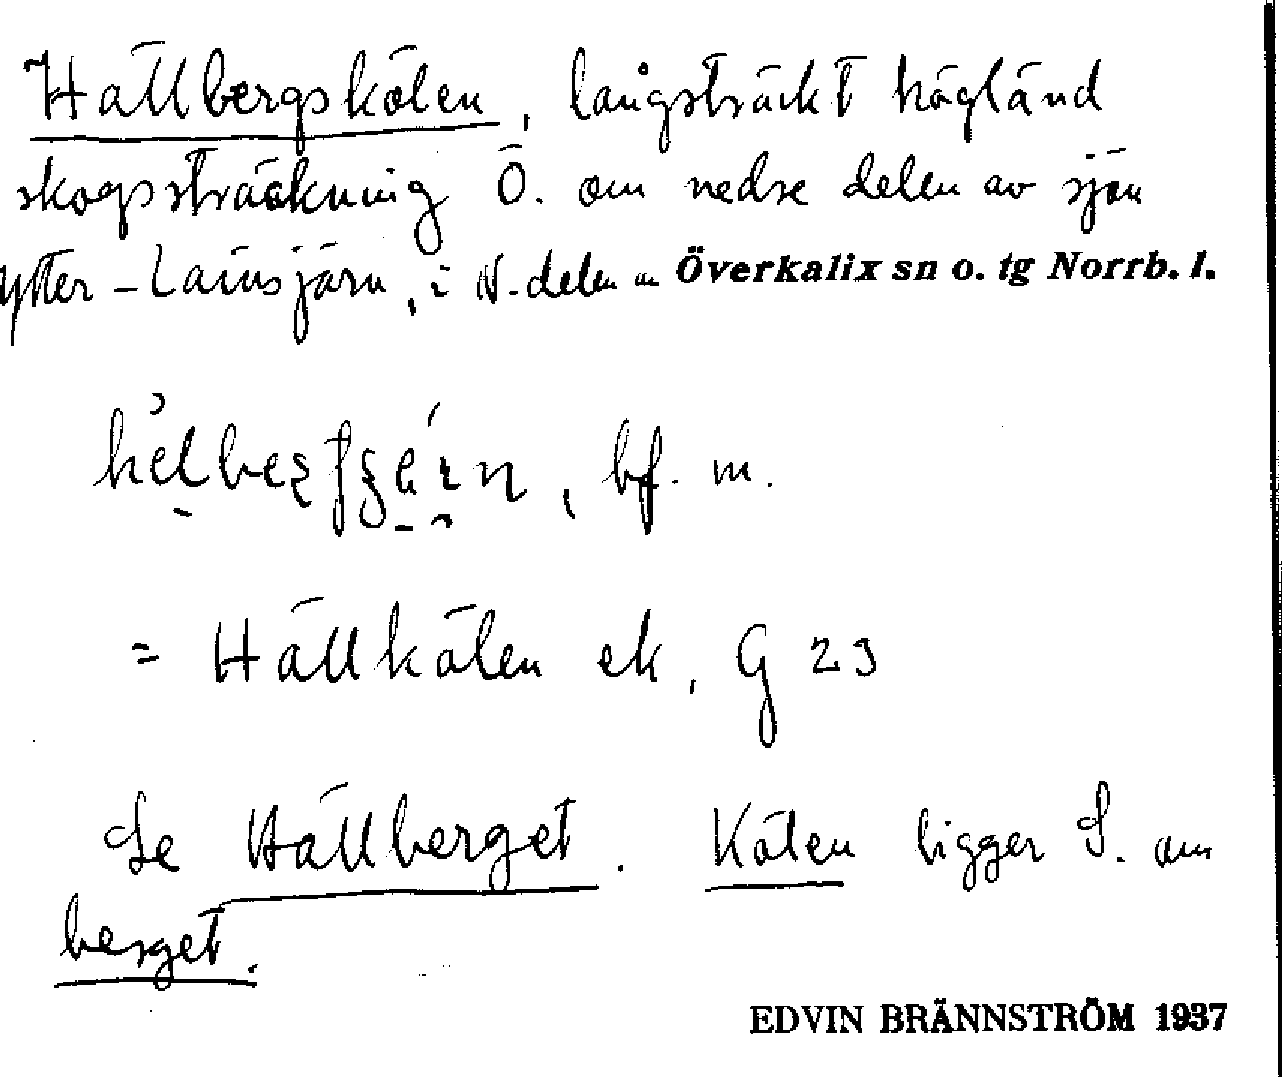 Hällbergskölen, långsträckt högländ
skogssträckning Ö. om nedre delen av sjön
Ytter-Lainsjärn, i N. delen av Överkalix sn o. tg Norrb. l.
bf. m.
= Hällkölen ek, G 23
Se Hällberget. Kölen ligger S. om
berget.
EDVIN BRÄNNSTRÖM 1937